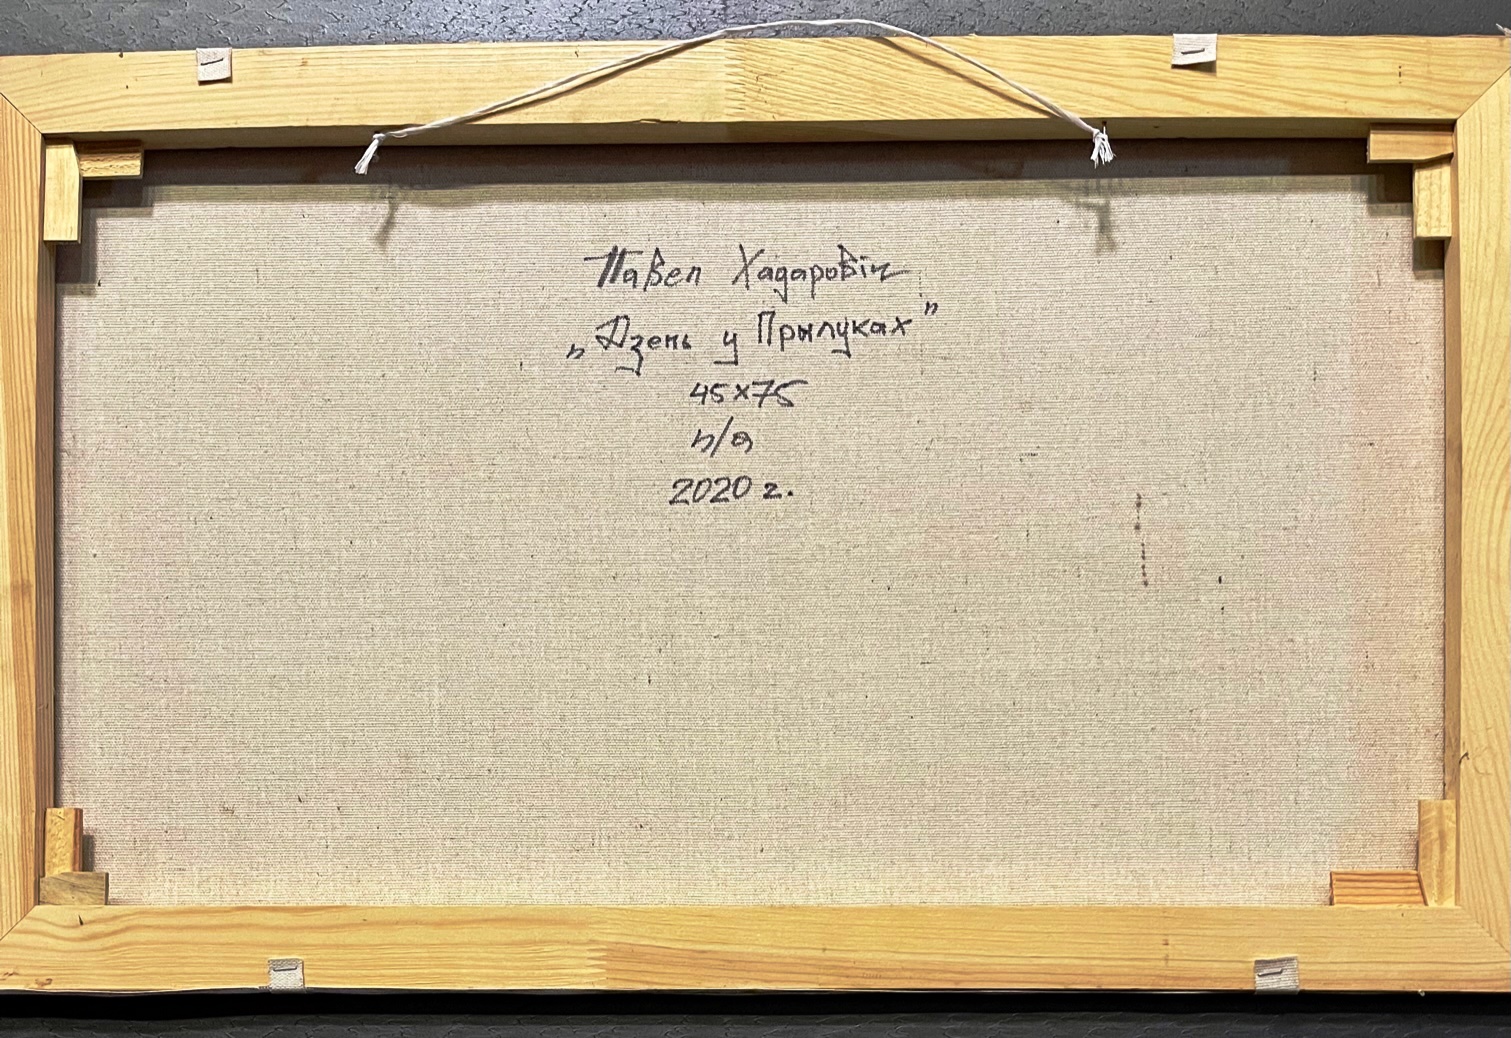 Павел Хадаровіч
„Дзень у Прылуках”
45х75
п/а
2020 г.